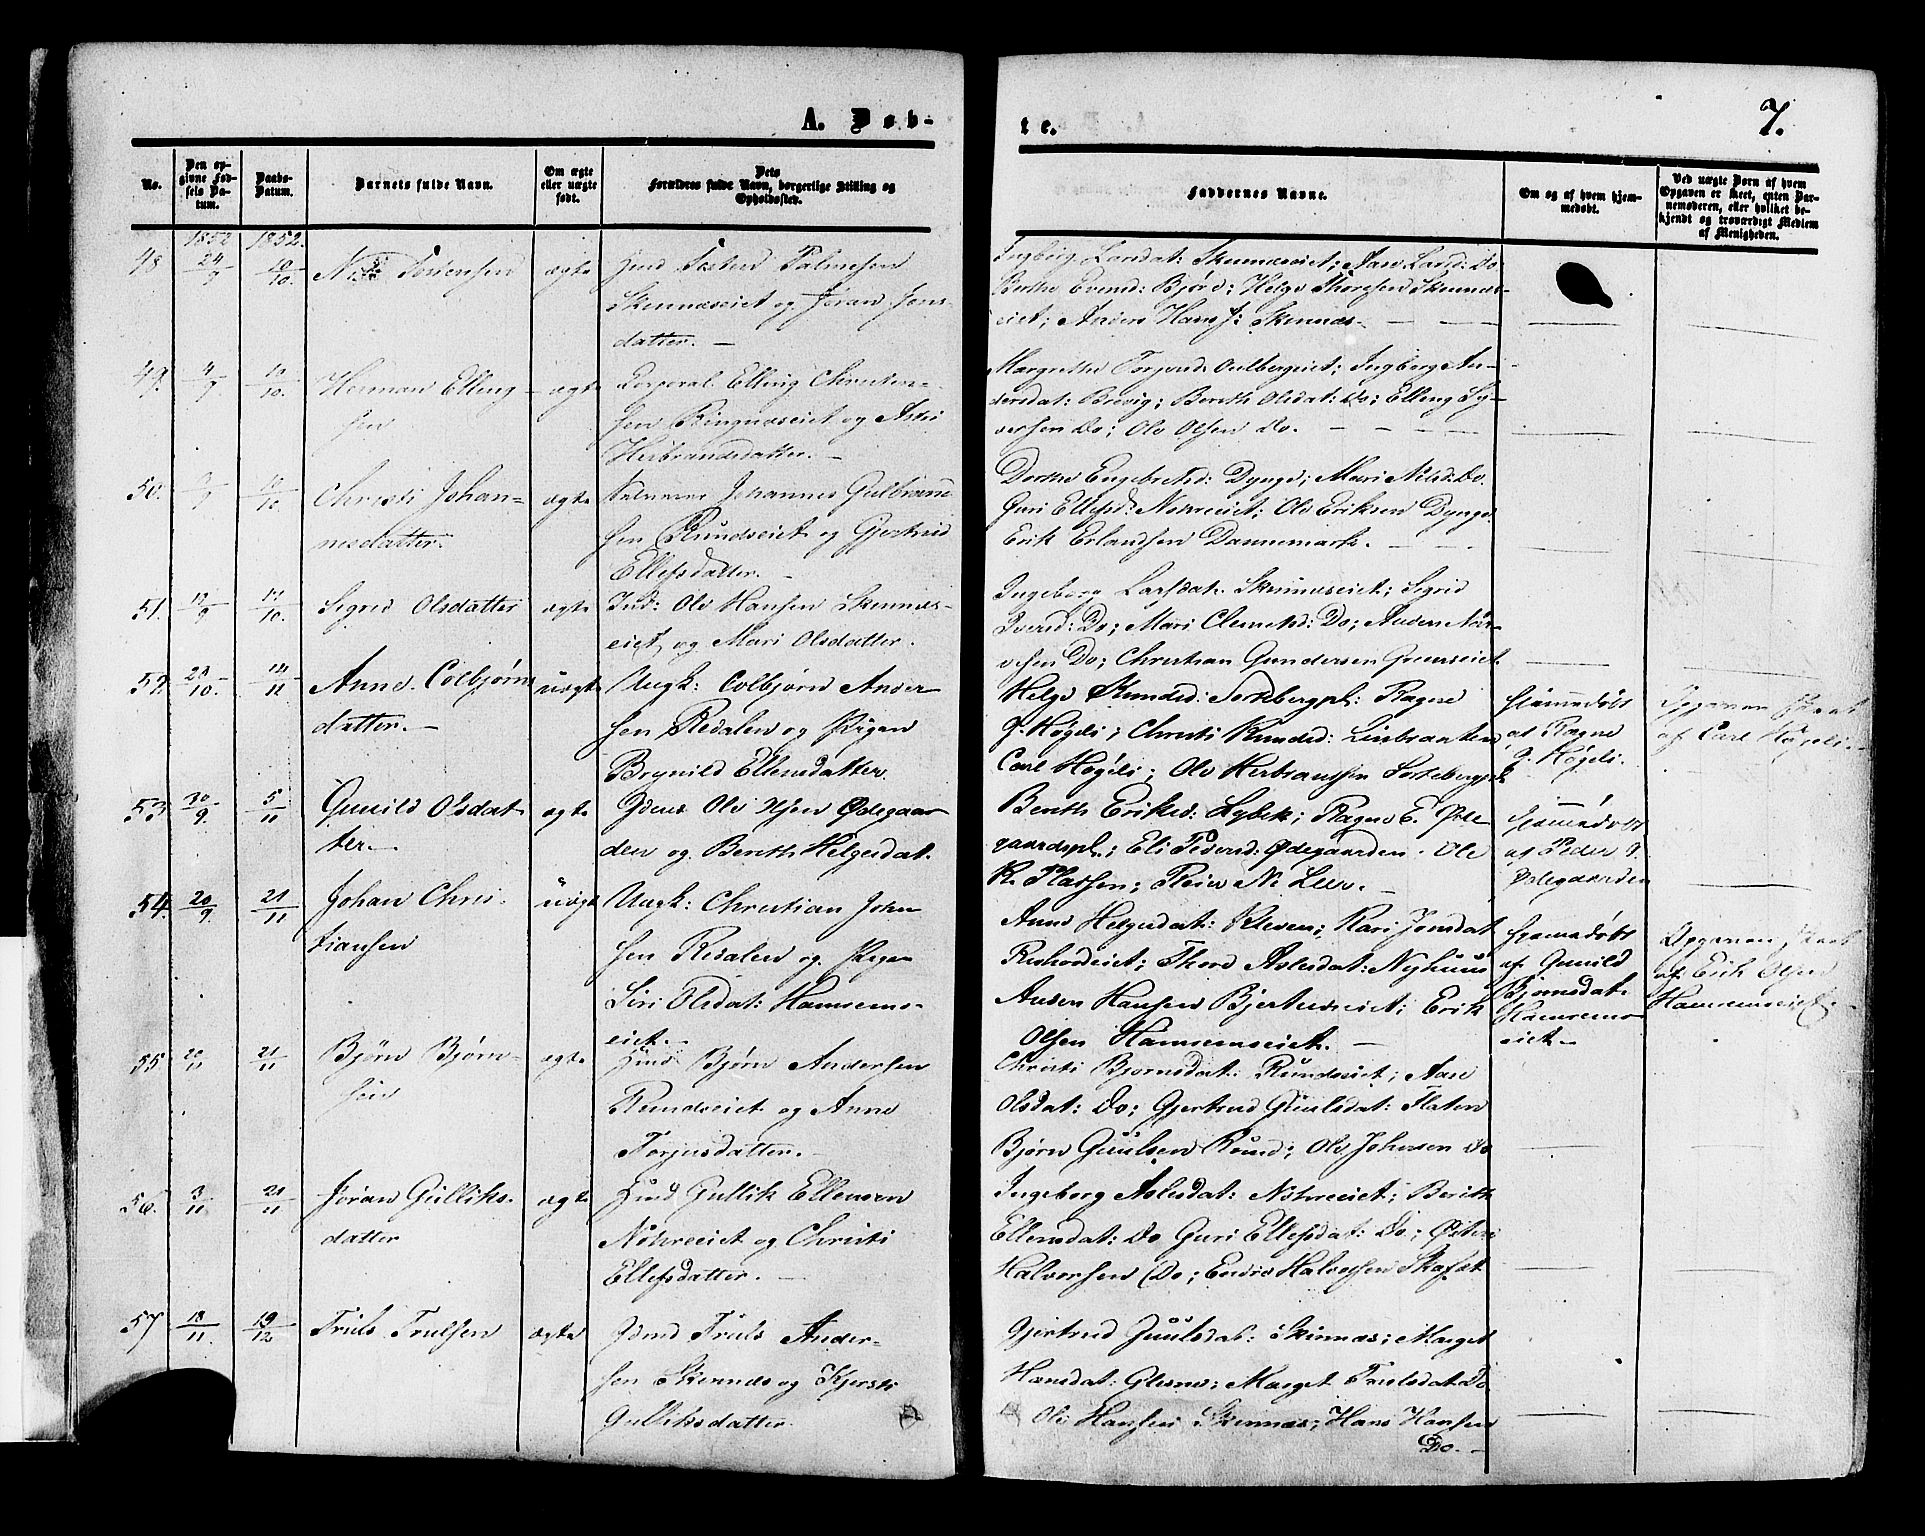 A. Døb-
te.
7.
No.
Den op-
givne Fød-
sels Da-
tum.
Daabs-
Datum.
Barnets fulde Navn.
Om ægte
eller uægte
født.
Dets
Forældres fulde Navn, borgerlige Stilling og
Opholdssted.
Faddernes Navne.
Om og af hvem hjem-
medøbt.
Ved uægte Børn af hvem
Opgaven er skeet, enten Bar-
nemoderen, eller hvilket be-
kjendt og troværdigt Medlem
af Menigheden.
1852 1852.
48 24/9 10/10 ægte
Skinnæseiet og Jøran Jens-
datter. —
Ingebrig Larsdat: Skinnæseiet; Aase Larsd: Do
Berthe Evensd: Bjøre; Helge Thoresen Skinnæs-
eiet; Anders Hans f: Skinnæs. — — —
49. 4/9 10/10. Herman Elling-
sen
ægte
Corporal Elling Christen-
sen Ringnæseiet og Astri
Herbrandsdatter. —
Margrethe Gulbergeiet; Ingbørg An-
dersdat: Brevig; Berith Olsdat: Do; Elling Sy-
versen Do; Ole Olsen Do. — — —
50. 10/10. Christi Johan-
nesdatter.
ægte
Johannes Gulbrand
sen Rundseiet og Gjertrud
Ellefsdatter. —
Dorthe Engebretsd: Dynge; Mari Nilsd: Do.
Guri Ellefsd: Nohreeiet; Ole Eriksen Dynge
Erik Erlandsen Dannemark. — —
51. 12/9 /10. Sigrid Olsdatter
ægte
Ind: Ole Hansen Skinnæs-
eiet og Mari Olsdatter.
Ingeborg Larsdat. Skinnæseiet; Sigrid
Iversd: Do; Mari Clemetsd: Do; Anders
Do; Christian Gundersen
52. 28/10. /11 Anne Colbjørns
datter. —
uægte
Ungk: Colbjørn Ander
sen Redalen og Pigen
Brynild Ellensdatter.
Helge Knudsd: Sorteberg pl: Ragne
G. Høgeli; Christi Knudsd:
Carl Høgeli; Ole Herbransen Sortebergpl.
Hjemmedøbt
af Ragne
G. Høgeli.
Opgaven skeet
af Carl Høgeli.
53. 30/9. 5/11 Gunild Olsdat-
ter. —
ægte
Ole Olsen Ødegaar
den og Berith Helgesdat.
Berith Eriksd: Lybek; Ragne E. Øde
gaardspl.; Eli Pedersd: Ødegaarden. Ole
K. Plassen; N. Leer. —
hjemmedøbt
af Peder G.
Ødegaarden
54. 20/9. 21/11 Johan Chris-
tiansen
uægte
Ungk: Christian John
sen Redalen og Pigen
Siri Olsdat: Hamrems-
eiet. —
Anne Helgesdat: Kleven; Kari Jonsdat
Thore Aslesdat: Nyhuus
Anders Hansen Bjertneseiet; Erik
Olsen Hamremseiet. —
hjemmedøbt
af Gunild
Bjørnsdat.
Hamrems-
eiet. —
Opgaven skeet
af Erik Olsen
Hamremseiet. —
55. 20/11 21/11 Bjørn Bjørn-
sen
ægte
Bjørn Andersen
Rundseiet og Anne
Torjusdatter. —
Christi Bjørnsdat: Rundseiet; Aase
Olsdat: Do; Gjertrud Guulsdat: Flaten
Bjørn Guulsen Rund; Ole Johnsen Do
56. 3/11 21/11 Jøran Gulliks-
datter
ægte
Gullik Ellensen
Nohreeiet og Christi
Ellefsdatter. —
Ingeborg Aslesdat: Nohreeiet; Berith
Ellensdat: Do Guri Ellefsdat: Do; Østen
Halvorsen Do; Endre Halvorsen
57 18/11. 19/12 Truls Trulsen
ægte
Truls Ander-
sen Skinnæs og Kjersti
Gulliksdatter.
Gjertrud Guulsdat: Skinnæs; Marget
Hansdat: Glesne; Marget Trulsdat Do
Ole Hansen Skinnæs; Hans Hansen
Do. —